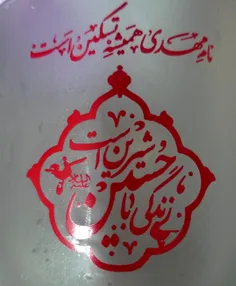 نام مهدی همیشه تسکین است
زندگی با حسین شیرین است